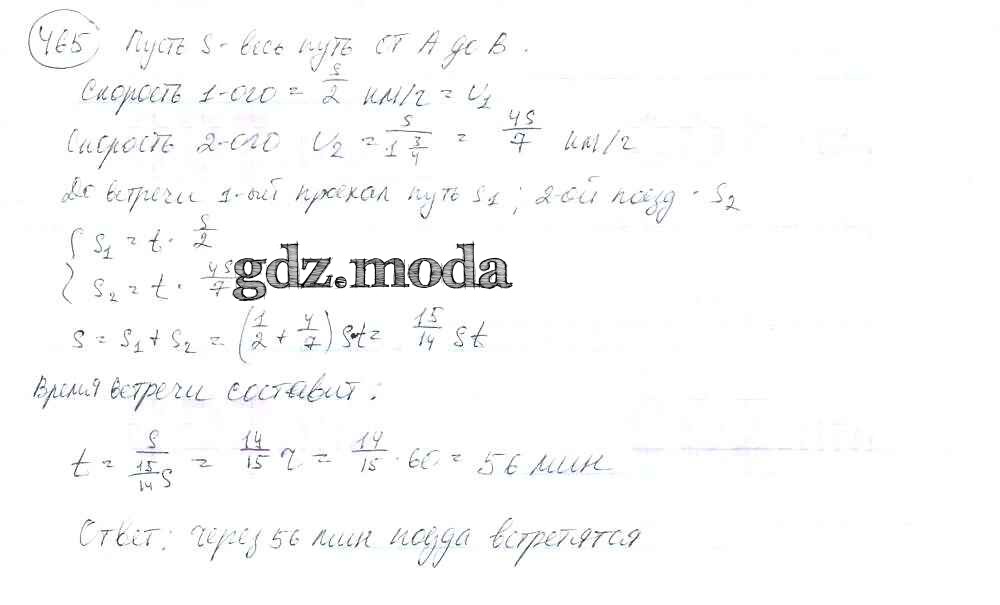 465 Пусть S - весь путь от А до В.
Скорость 1-ого = S/2 км/ч = U₁
Скорость 2-ого U₂ = S/(1 3/4) = 4S/7 км/ч
До встречи 1-ый проехал путь S₁; 2-ой поезд - S₂
{ S₁ = t · S/2
{ S₂ = t · 4S/7
gdz.moda
S = S₁ + S₂ = (1/2 + 4/7) St = 15/14 St
Время встречи составит:
t = S/(15/14 S) = 14/15 ч = 14/15 · 60 = 56 мин
Ответ: через 56 мин поезда встретятся